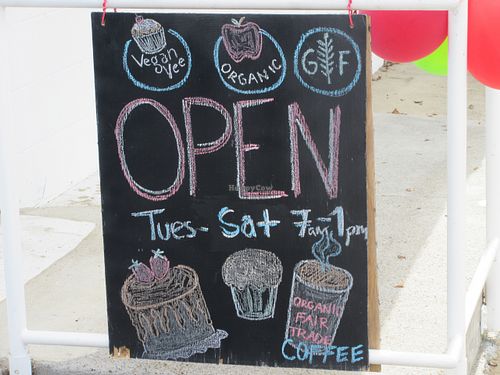 Vegan Vee
ORGANIC
G F
OPEN
Tues- Sat 7am-1pm
ORGANIC
FAIR
TRADE
COFFEE